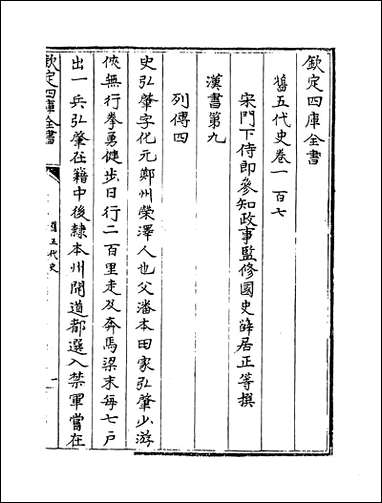 欽定四庫全書
舊五代史卷一百七
宋門下侍郎參知政事監修國史薛居正等撰
漢書第九
列傳四
史弘肇字化元鄭州榮澤人也父潘本田家弘肇少游
俠無行拳勇健步日行二百里走及奔馬梁末每七户
出一兵弘肇在籍中後隸本州開道都選入禁軍嘗在
欽定四庫全書
舊五代史
一